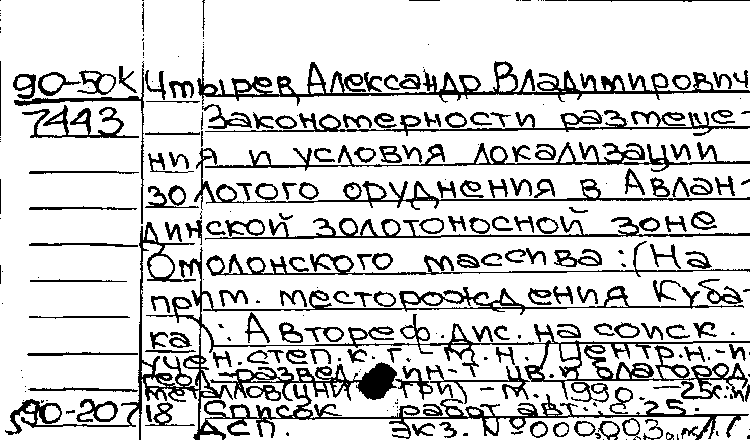 90-50к Чтырев, Александр Владимирович
7443 Закономерности размеще-
ния и условия локализации
золотого оруднения в Авлан-
динской золотоносной зоне
Омолонского массива : (На
прим. месторождения Куба-
ка) : Автореф. дис. на соиск.
учен. степ. к. г. - м. н. / Центр. н.-и.
геол.-развед. ин-т цв. и благород.
металлов (ЦНИГРИ) - М., 1990. - 25с.
90-20718 Список работ авт.: с. 25.
ДСП. Экз. №000003